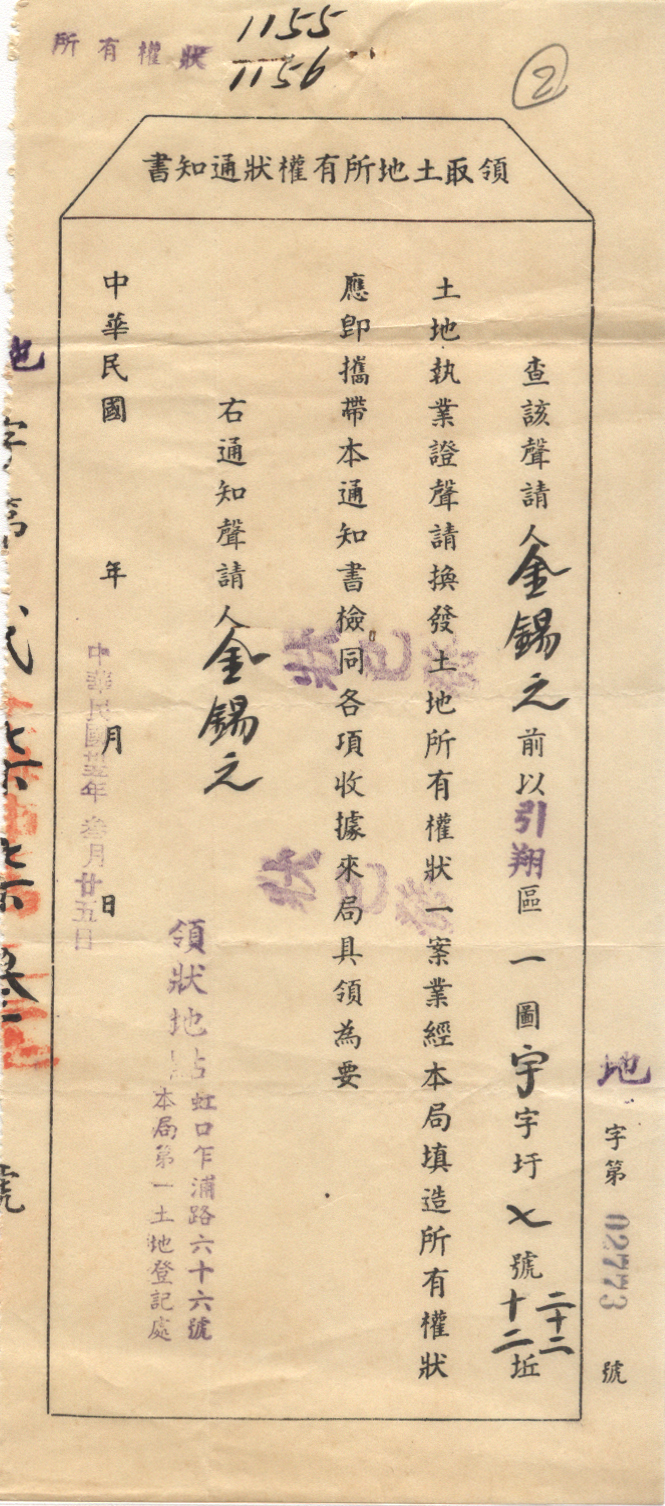 所有權狀
1155
1156
2
領取土地所有權狀通知書
地字第02773號
查該聲請人金錫之前以引翔區一圖宇字圩七號二十二十二坵
土地執業證聲請換發土地所有權狀一案業經本局填造所有權狀
應即攜帶本通知書檢同各項收據來局具領為要
右通知聲請人金錫之
領狀地點
虹口乍浦路六十六號
本局第一土地登記處
中華民國 年 月 日
中華民國卅五年叁月廿五日
地字第
號